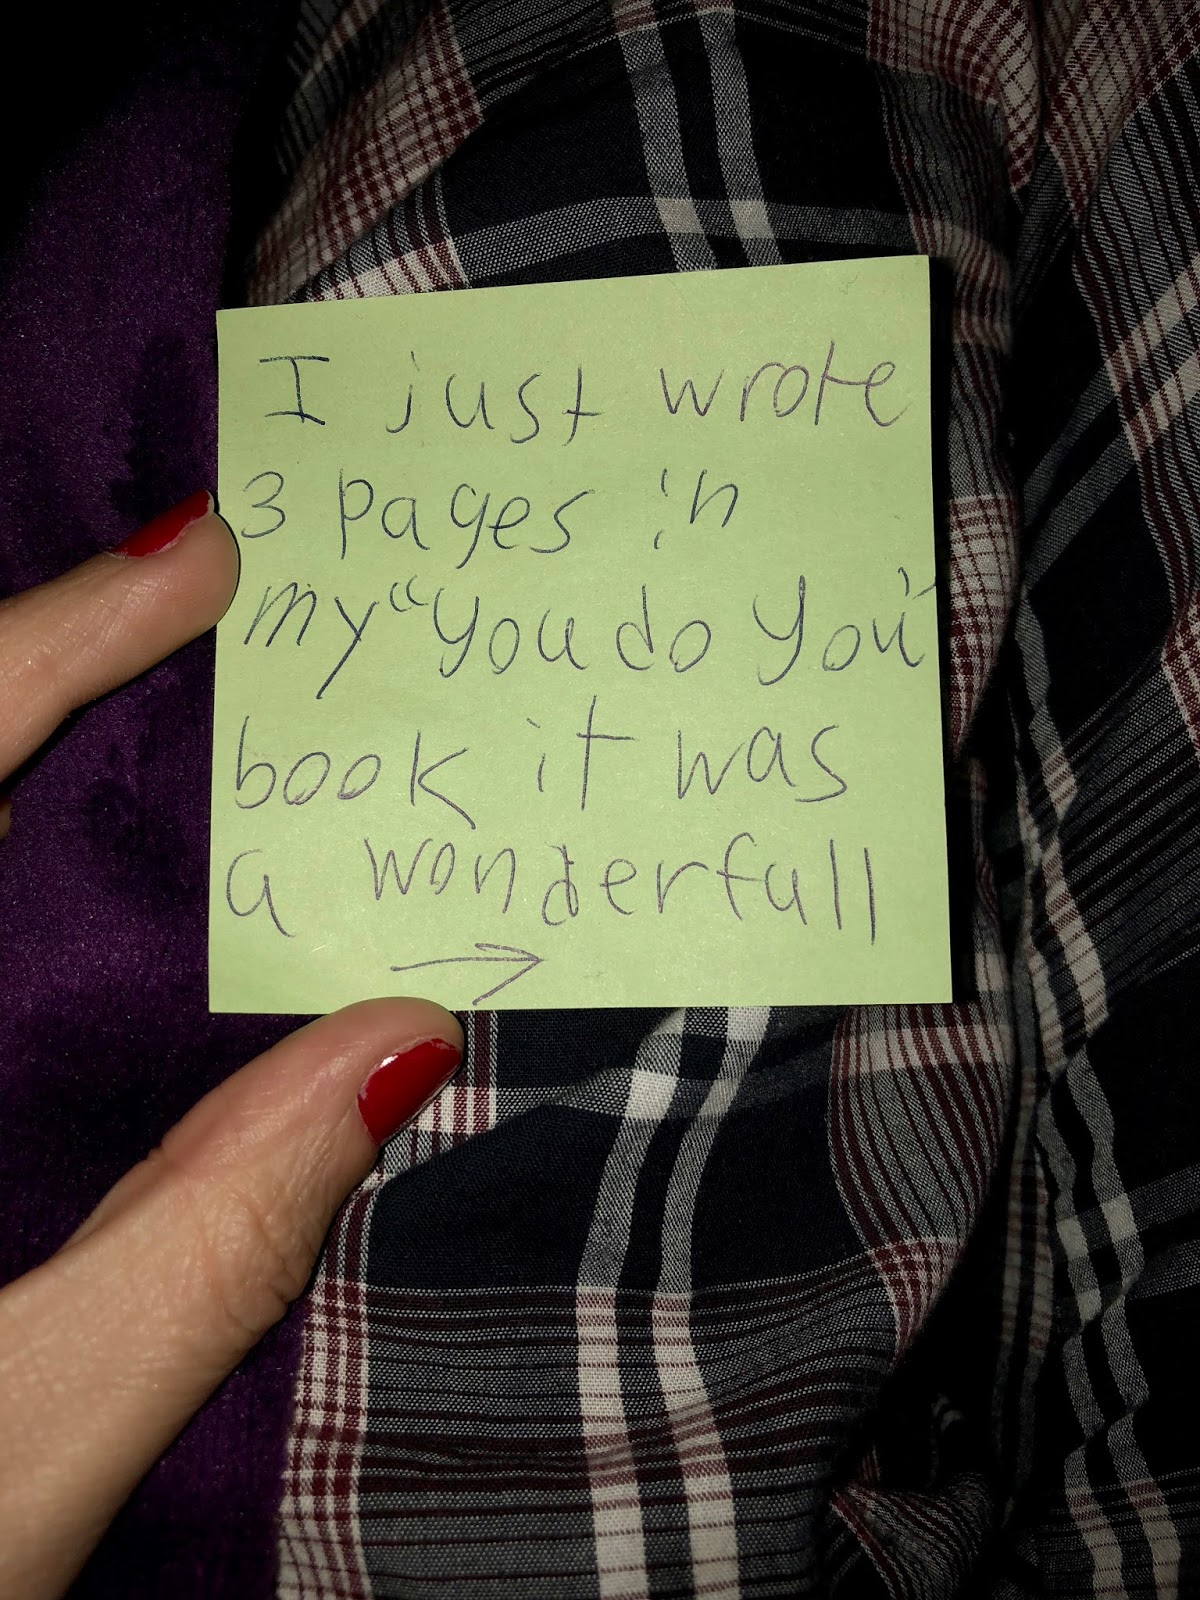 I just wrote
3 pages in
my "you do you"
book it was
a wonderfull
→